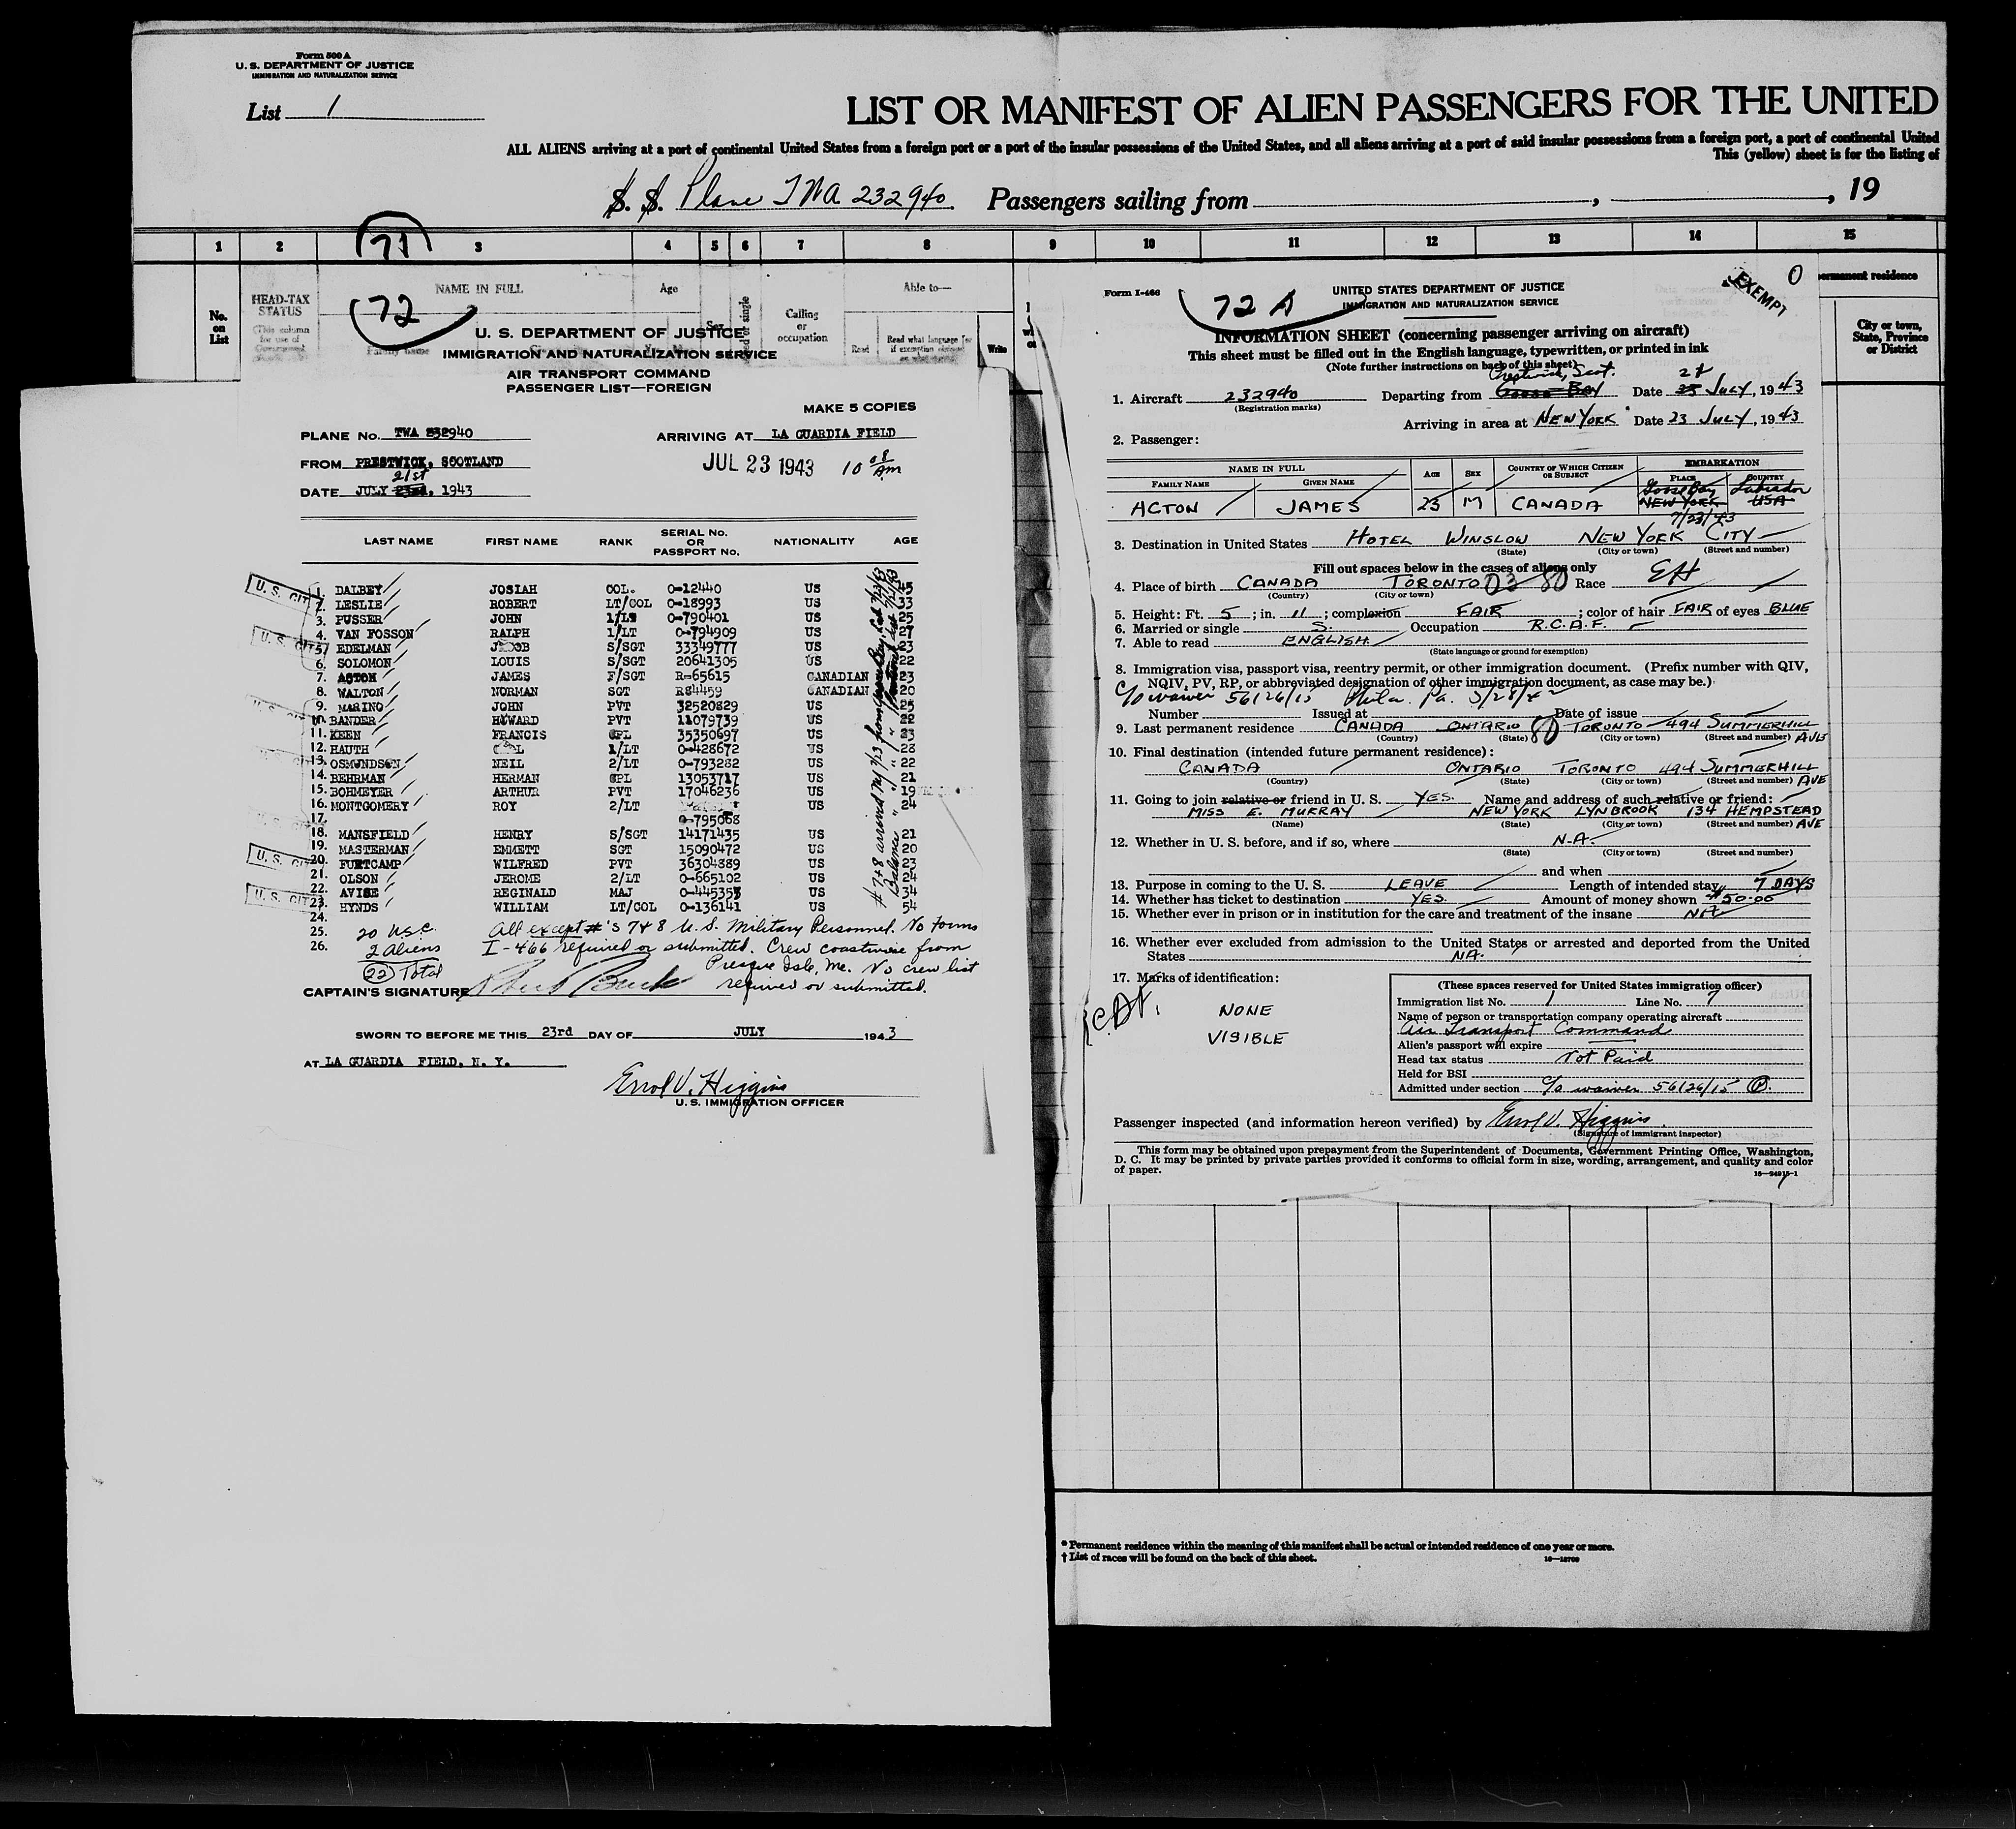 Form 500 A
U. S. DEPARTMENT OF JUSTICE
IMMIGRATION AND NATURALIZATION SERVICE
List 1
LIST OR MANIFEST OF ALIEN PASSENGERS FOR THE UNITED
ALL ALIENS arriving at a port of continental United States from a foreign port or a port of the insular possessions of the United States, and all aliens arriving at a port of said insular possessions from a foreign port, a port of continental United
This (yellow) sheet is for the listing of
S. S. Plane TWA 232940 Passengers sailing from , , 19
1 2 71 3 4 5 6 7 8 9 10 11 12 13 14 15
No. on List
HEAD-TAX STATUS
NAME IN FULL
Age
Sex
Calling or occupation
Able to—
Read
Read what language
Write
permanent residence
City or town, State, Province or District
72
U. S. DEPARTMENT OF JUSTICE
IMMIGRATION AND NATURALIZATION SERVICE
AIR TRANSPORT COMMAND
PASSENGER LIST—FOREIGN
MAKE 5 COPIES
PLANE No. TWA 232940 ARRIVING AT LA GUARDIA FIELD
FROM PRESTWICK, SCOTLAND JUL 23 1943 10 08 AM
21st
DATE JULY 23rd, 1943
LAST NAME FIRST NAME RANK SERIAL No. OR PASSPORT No. NATIONALITY AGE
U. S. CIT
1. DALBEY JOSIAH COL. O-12440 US 45
2. LESLIE ROBERT LT/COL O-18993 US 33
3. PUSSER JOHN 1/LT O-790401 US 25
4. VAN FOSSON RALPH 1/LT O-794909 US 27
U. S. CIT
5. EDELMAN JACOB S/SGT 33349777 US 23
6. SOLOMON LOUIS S/SGT 20641305 US 22
7. ACTON JAMES F/SGT R-65615 CANADIAN 23
8. WALTON NORMAN SGT R84459 CANADIAN 20
9. MARINO JOHN PVT 32520829 US 25
10. BANDER HOWARD PVT 11079739 US 22
11. KEEN FRANCIS CPL 35350697 US 23
12. HAUTH 1/LT O-428672 US 28
13. OSMUNDSON NEIL 2/LT O-793282 US 22
14. BEHRMAN HERMAN CPL 13053717 US 21
15. BOHMEYER ARTHUR PVT 17046236 US 19
16. MONTGOMERY ROY 2/LT US 24
17. O-795068
18. MANSFIELD HENRY S/SGT 14171435 US 21
19. MASTERMAN EMMETT SGT 15090472 US 20
U. S. CIT
20. FURTCAMP WILFRED PVT 36304889 US 23
21. OLSON JEROME 2/LT O-665102 US 24
22. AVISE REGINALD MAJ O-445357 US 34
U. S. CIT
23. HYNDS WILLIAM LT/COL O-136141 US 54
24.
25. 20 U.S.C. All except #'s 7 & 8 U. S. Military Personnel. No forms
26. 2 aliens I-466 required or submitted. Crew coastwise from
22 Total Presque Isle, Me. No crew list
CAPTAIN'S SIGNATURE required or submitted.
SWORN TO BEFORE ME THIS 23rd DAY OF JULY 1943
AT LA GUARDIA FIELD, N. Y.
Errol V. Higgins
U.S. IMMIGRATION OFFICER
Form I-466
72 A
UNITED STATES DEPARTMENT OF JUSTICE
IMMIGRATION AND NATURALIZATION SERVICE
EXEMPT
0
INFORMATION SHEET (concerning passenger arriving on aircraft)
This sheet must be filled out in the English language, typewritten, or printed in ink
(Note further instructions on back of this sheet)
Prestwick, Scot. 21
1. Aircraft 232940 Departing from Goose Bay Date 23 JULY, 1943
(Registration marks)
Arriving in area at NEW YORK Date 23 JULY, 1943
2. Passenger:
NAME IN FULL AGE SEX COUNTRY OF WHICH CITIZEN OR SUBJECT EMBARKATION
FAMILY NAME GIVEN NAME PLACE COUNTRY
Goose Bay Labrador
ACTON JAMES 23 M CANADA NEW YORK USA
7/23/43
3. Destination in United States HOTEL WINSLOW NEW YORK CITY
(State) (City or town) (Street and number)
Fill out spaces below in the cases of aliens only
4. Place of birth CANADA TORONTO 03 80 Race EH
(Country) (City or town)
5. Height: Ft. 5; in. 11; complexion FAIR; color of hair FAIR of eyes BLUE
6. Married or single S. Occupation R.C.A.F.
7. Able to read ENGLISH
(State language or ground for exemption)
8. Immigration visa, passport visa, reentry permit, or other immigration document. (Prefix number with QIV,
NQIV, PV, RP, or abbreviated designation of other immigration document, as case may be.)
c/o waiver 56126/15 Phila. Pa.
Number Issued at Date of issue
9. Last permanent residence CANADA ONTARIO 80 TORONTO 494 SUMMERHILL AVE
(Country) (State) (City or town) (Street and number)
10. Final destination (intended future permanent residence):
CANADA ONTARIO TORONTO 494 SUMMERHILL
(Country) (State) (City or town) (Street and number) AVE
11. Going to join relative or friend in U. S. YES. Name and address of such relative or friend:
MISS E. MURRAY NEW YORK LYNBROOK 134 HEMPSTEAD
(Name) (State) (City or town) (Street and number) AVE
12. Whether in U. S. before, and if so, where N.A.
(State) (City or town) (Street and number)
and when
13. Purpose in coming to the U. S. LEAVE Length of intended stay 7 DAYS
14. Whether has ticket to destination YES. Amount of money shown $50.00
15. Whether ever in prison or in institution for the care and treatment of the insane NA
16. Whether ever excluded from admission to the United States or arrested and deported from the United
States NA.
17. Marks of identification:
NONE
VISIBLE
(These spaces reserved for United States immigration officer)
Immigration list No. 1 Line No. 7
Name of person or transportation company operating aircraft
Air Transport Command
Alien's passport will expire
Head tax status Not Paid
Held for BSI
Admitted under section c/o waiver 56126/15
Passenger inspected (and information hereon verified) by Errol V. Higgins
(Signature of immigrant inspector)
This form may be obtained upon prepayment from the Superintendent of Documents, Government Printing Office, Washington,
D. C. It may be printed by private parties provided it conforms to official form in size, wording, arrangement, and quality and color
of paper.
* Permanent residence within the meaning of this manifest shall be actual or intended residence of one year or more.
† List of races will be found on the back of this sheet.